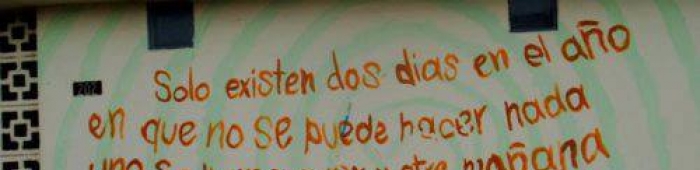 Solo existen dos dias en el año
202
en que no se puede hacer nada
mañana